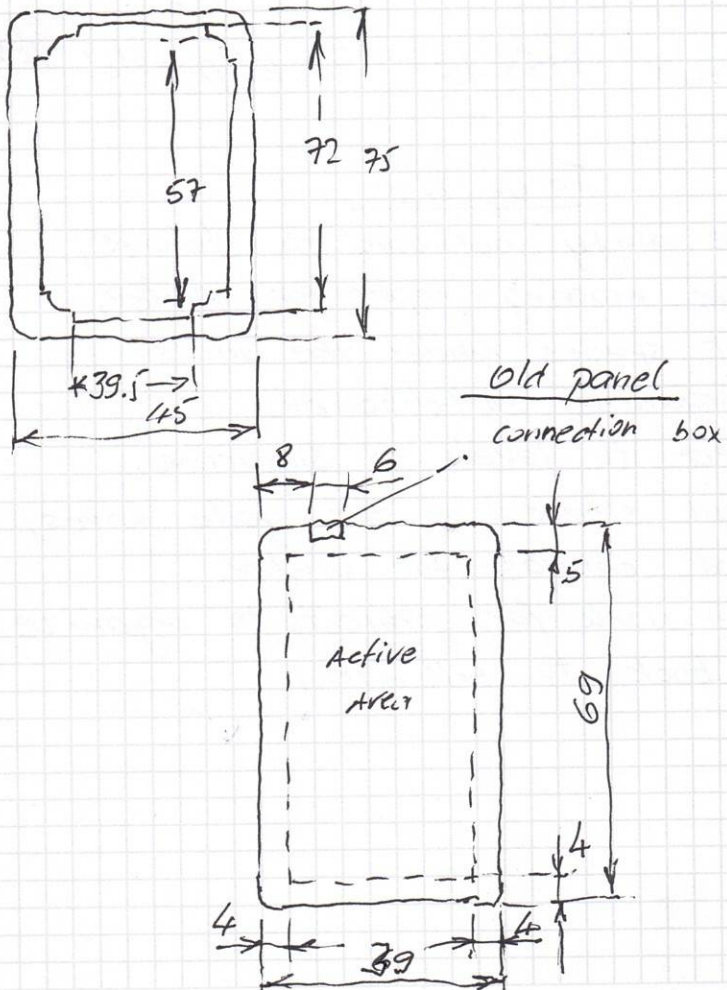 72
75
57
39.5
45
Old panel
connection box
8
6
5
Active
Area
69
4
4
39
4